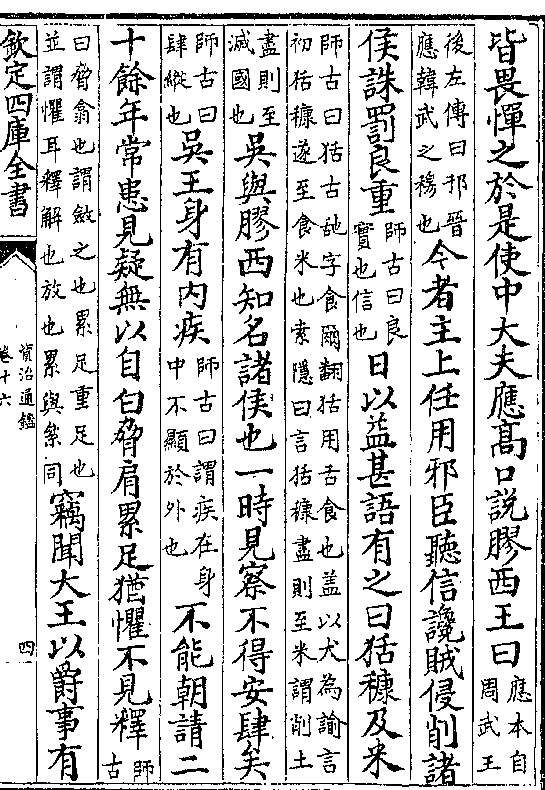 皆畏憚之於是使中大夫應髙口說膠西王曰應本自周武王
後左傳曰邘晉應韓武之穆也今者主上任用邪臣聽信讒賊侵削諸
侯誅罰良重師古曰良實也信也日以益甚語有之曰狧穅及米
師古曰狧古䑛字食爾翻狧用舌食也蓋以犬為諭言初狧穅遂至食米也索隱曰言狧穅盡則至米謂削土
盡則至滅國也吳與膠西知名諸侯也一時見察不得安肆矣
師古曰肆縱也吳王身有内疾師古曰謂疾在身中不顯於外也不能朝請二
十餘年常患見疑無以自白脅肩累足猶懼不見釋師古
曰脅翕也謂斂之也累足重足也並謂懼耳釋解也放也累與絫同竊聞大王以爵事有
欽定四庫全書
資治通鑑
卷十六
四